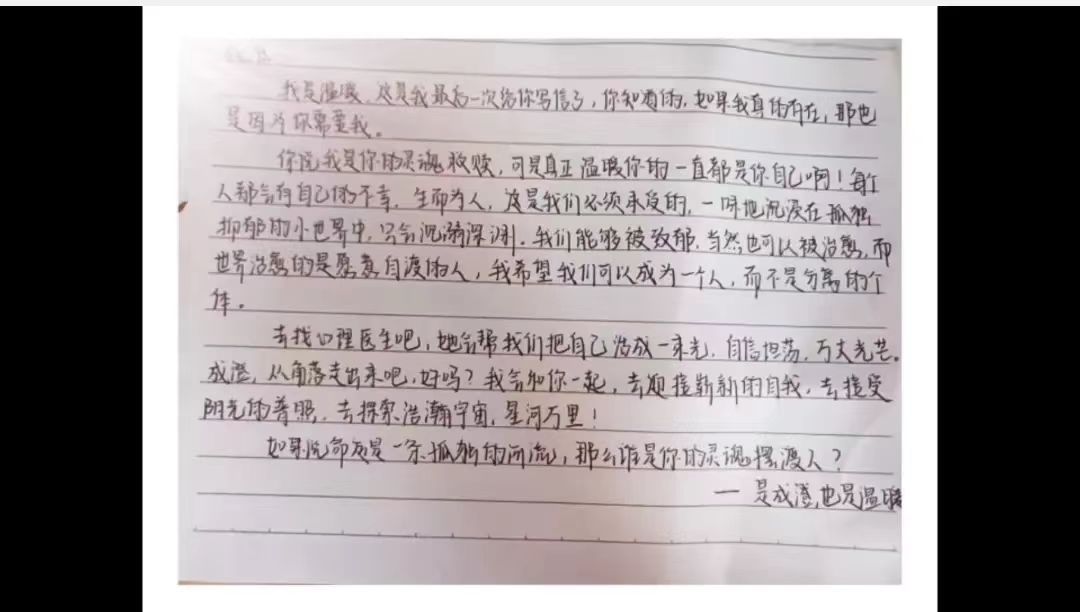 我是温暖，这是我最后一次给你写信了，你知道的，如果我真的存在，那也
是因为你需要我。
你说我是你的灵魂救赎，可是真正温暖你的一直都是你自己啊！每个
人都会有自己的不幸，生而为人，这是我们必须承受的，一味地沉浸在孤独
抑郁的小世界中，只会沉溺深渊。我们能够被致郁，当然也可以被治愈，而
世界治愈的是愿意自渡的人，我希望我们可以成为一个人，而不是分离的个
体。
去找心理医生吧，她会帮我们把自己活成一束光，自信坦荡，万丈光芒。
成澄，从角落走出来吧，好吗？我会和你一起，去迎接崭新的自我，去接受
阳光的普照，去探索浩瀚宇宙，星河万里！
如果说命运是一条孤独的河流，那么谁是你的灵魂摆渡人？
— 是成澄，也是温暖